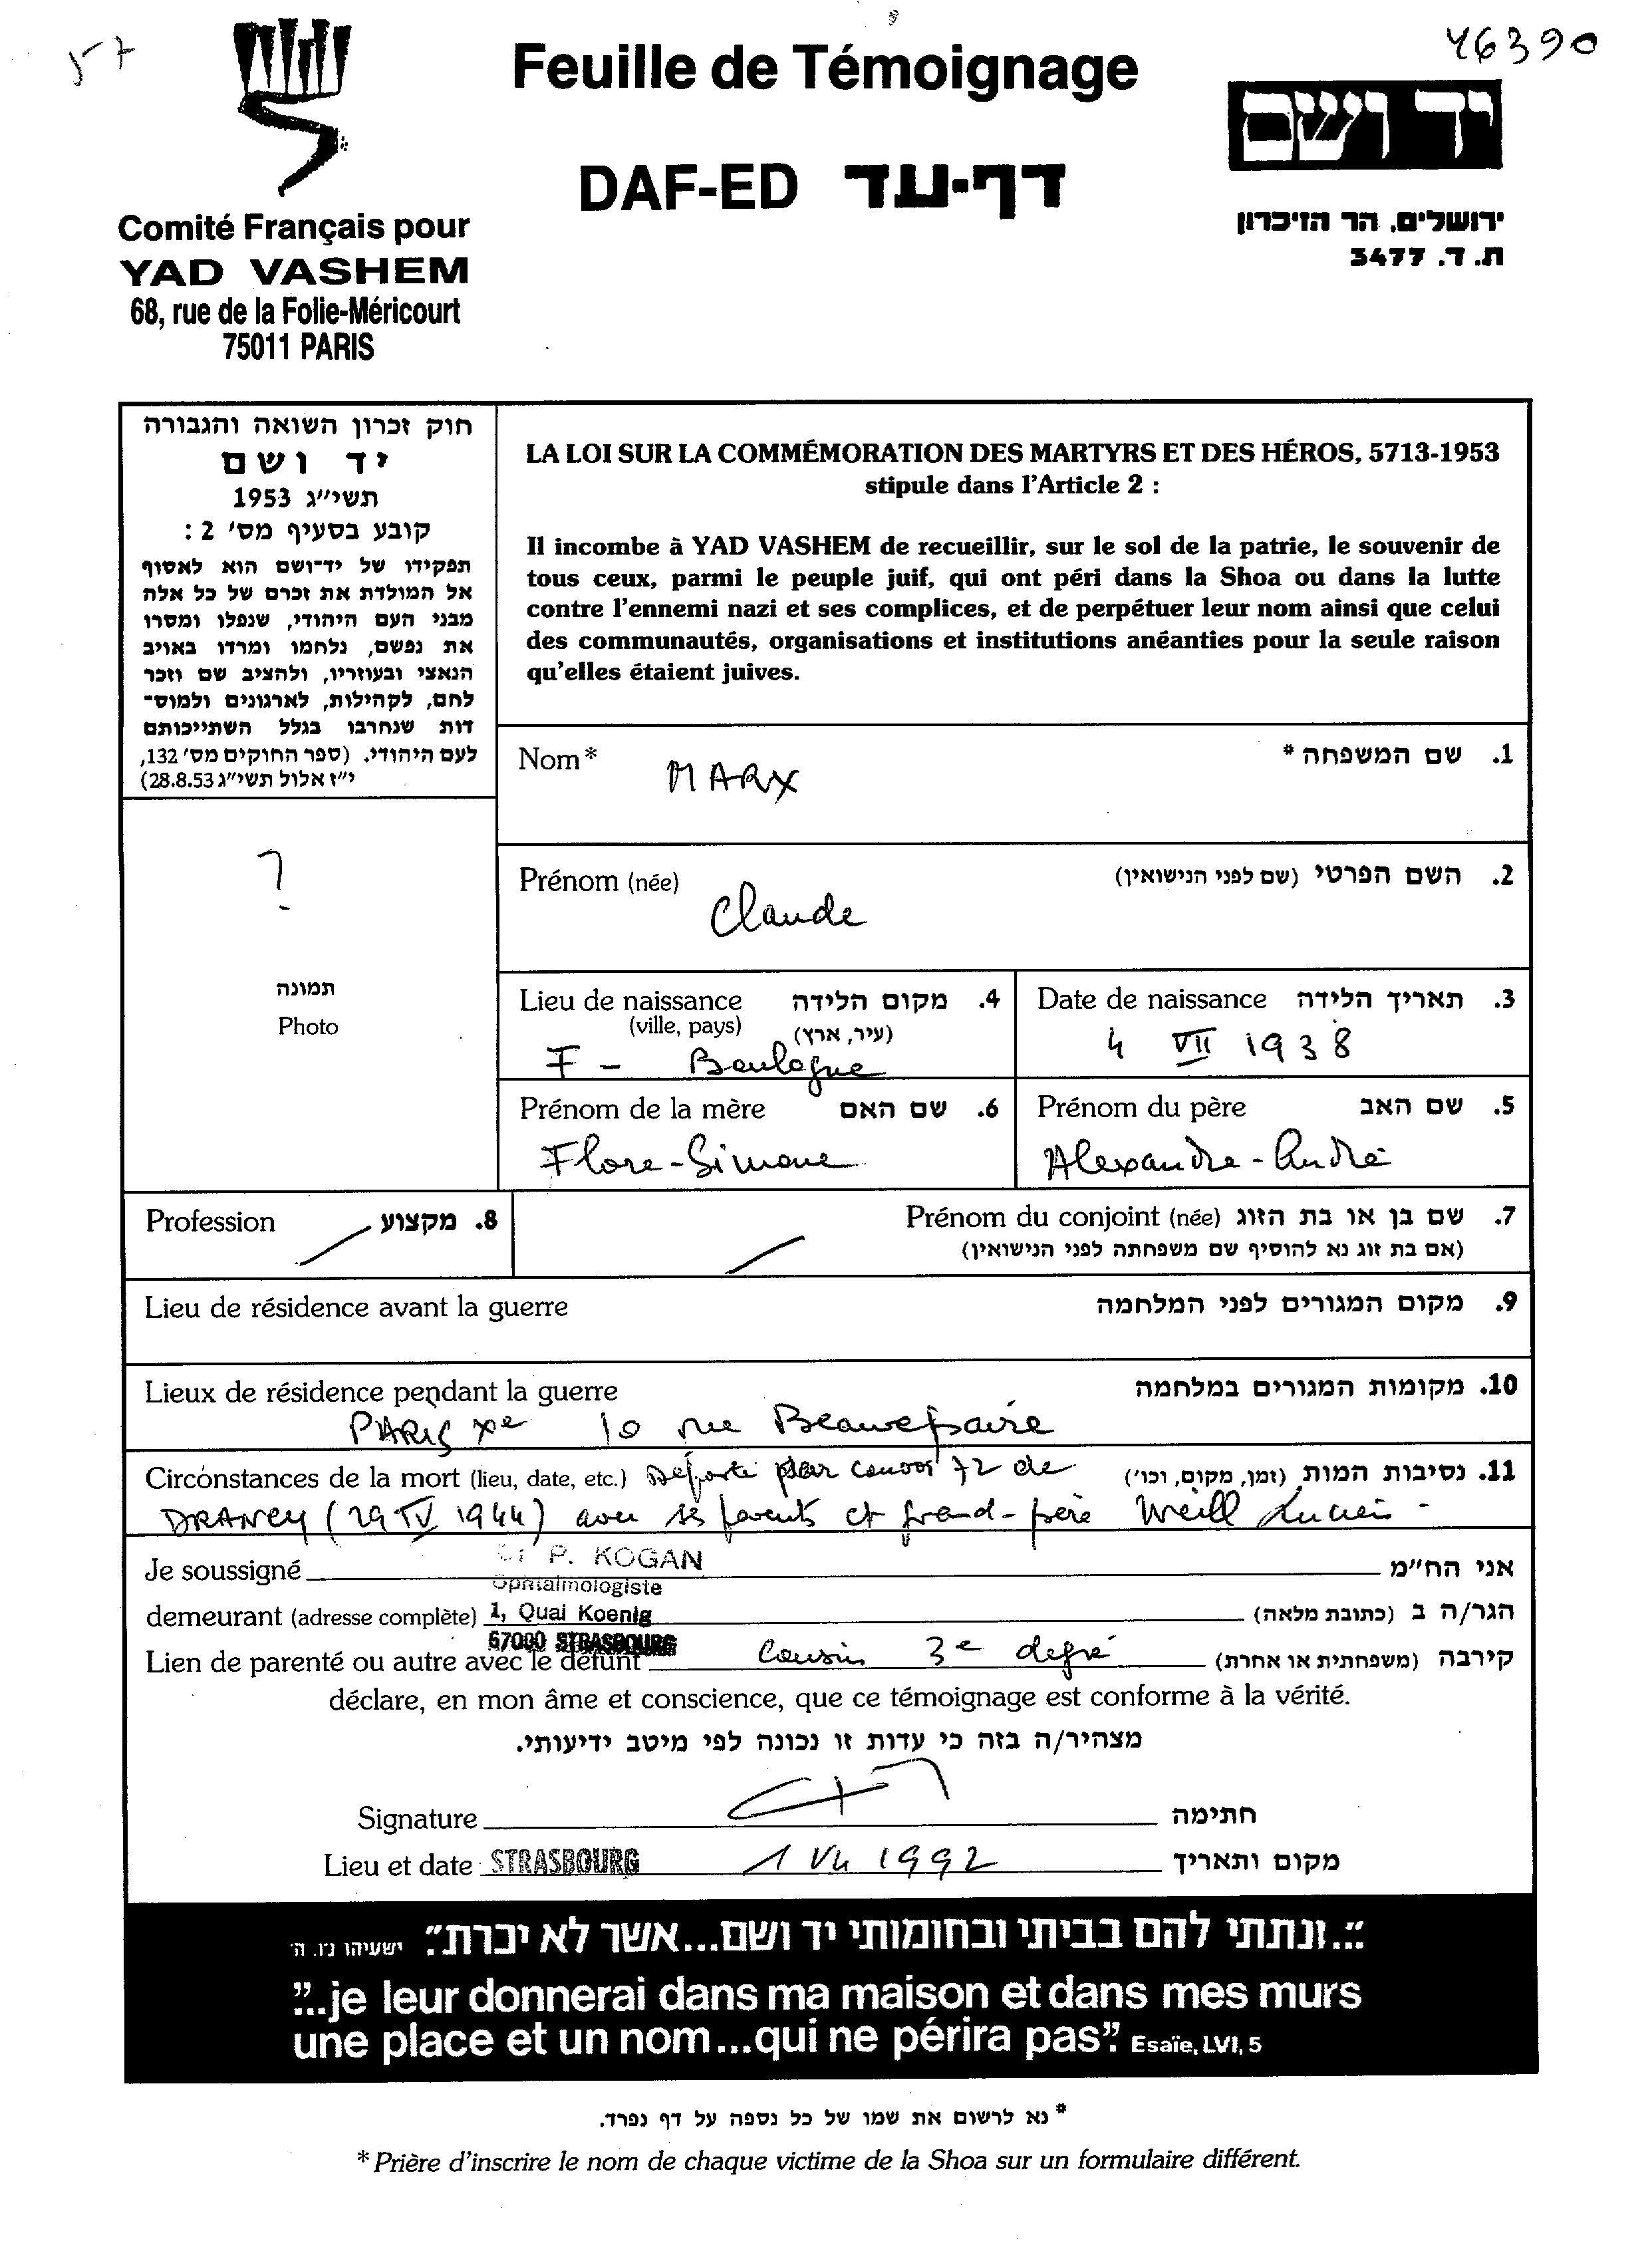 57
Feuille de Témoignage
46390
יד ושם
DAF-ED דף-עד
ירושלים, הר הזיכרון
ת. ד. 3477
Comité Français pour
YAD VASHEM
68, rue de la Folie-Méricourt
75011 PARIS
חוק זכרון השואה והגבורה
יד ושם
תשי״ג 1953
קובע בסעיף מס׳ 2 :
תפקידו של יד־ושם הוא לאסוף
אל המולדת את זכרם של כל אלה
מבני העם היהודי, שנפלו ומסרו
את נפשם, נלחמו ומרדו באויב
הנאצי ובעוזריו, ולהציב שם וזכר
להם, לקהילות, לארגונים ולמוס־
דות שנחרבו בגלל השתייכותם
לעם היהודי. (ספר החוקים מס׳ 132,
י״ז אלול תשי״ג 28.8.53)
LA LOI SUR LA COMMÉMORATION DES MARTYRS ET DES HÉROS, 5713-1953
stipule dans l'Article 2 :
Il incombe à YAD VASHEM de recueillir, sur le sol de la patrie, le souvenir de
tous ceux, parmi le peuple juif, qui ont péri dans la Shoa ou dans la lutte
contre l'ennemi nazi et ses complices, et de perpétuer leur nom ainsi que celui
des communautés, organisations et institutions anéanties pour la seule raison
qu'elles étaient juives.
Nom* 1. שם המשפחה *
MARX
Prénom (née) 2. השם הפרטי (שם לפני הנישואין)
Claude
?
תמונה
Photo
Lieu de naissance 4. מקום הלידה
(ville, pays) (עיר, ארץ)
F - Boulogne
Date de naissance 3. תאריך הלידה
4 VII 1938
Prénom de la mère 6. שם האם
Flore-Simone
Prénom du père 5. שם האב
Alexandre-André
Profession 8. מקצוע
Prénom du conjoint (née) 7. שם בן או בת הזוג
(אם בת זוג נא להוסיף שם משפחתה לפני הנישואין)
Lieu de résidence avant la guerre 9. מקום המגורים לפני המלחמה
Lieux de résidence pendant la guerre 10. מקומות המגורים במלחמה
PARIS Xe 10 rue Beaurepaire
Circonstances de la mort (lieu, date, etc.) Déporté par convoi 72 de 11. נסיבות המות (זמן, מקום, וכו׳)
DRANCY (29 IV 1944) avec ses parents et grand-père Weill Lucien -
Je soussigné Dr P. KOGAN אני הח״מ
Ophtalmologiste
demeurant (adresse complète) 1, Quai Koenig הגר/ה ב (כתובת מלאה)
67000 STRASBOURG
Lien de parenté ou autre avec le défunt Cousin 3e degré קירבה (משפחתית או אחרת)
déclare, en mon âme et conscience, que ce témoignage est conforme à la vérité.
מצהיר/ה בזה כי עדות זו נכונה לפי מיטב ידיעותי.
Signature חתימה
Lieu et date STRASBOURG 1 VII 1992 מקום ותאריך
״...ונתתי להם בביתי ובחומותי יד ושם...אשר לא יכרת״. ישעיהו נ״ו, ה׳
"...je leur donnerai dans ma maison et dans mes murs
une place et un nom...qui ne périra pas". Esaïe, LVI, 5
* נא לרשום את שמו של כל נספה על דף נפרד.
* Prière d'inscrire le nom de chaque victime de la Shoa sur un formulaire différent.